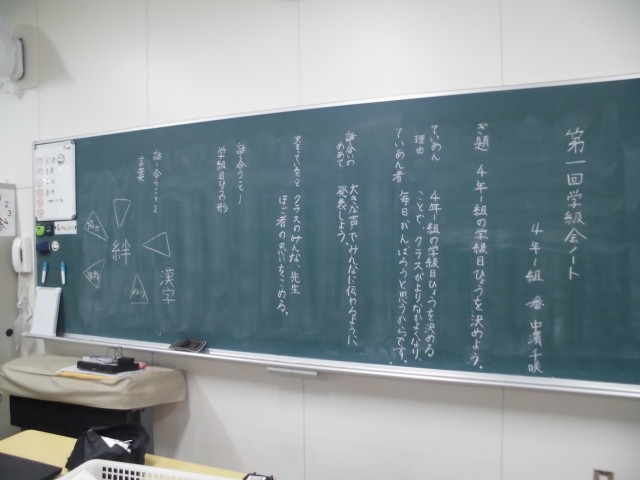 第一回学級会ノート
4年1組 番 中濱千咲
ぎ題 4年1組の学級目ひょうを決めよう。
ていあん理由 4年1組の学級目ひょうを決める
ことで、クラスがよりなかよくなり、
ていあん者 毎日がんばろうと思うからです。
話合いのめあて 大きな声でみんなに伝わるように、
発表しよう。
決まっていること クラスのみんな、先生
ほご者の思いをこめる。
話し合うこと1
学級目ひょうの形
話し合うこと2
言葉
漢字
絆